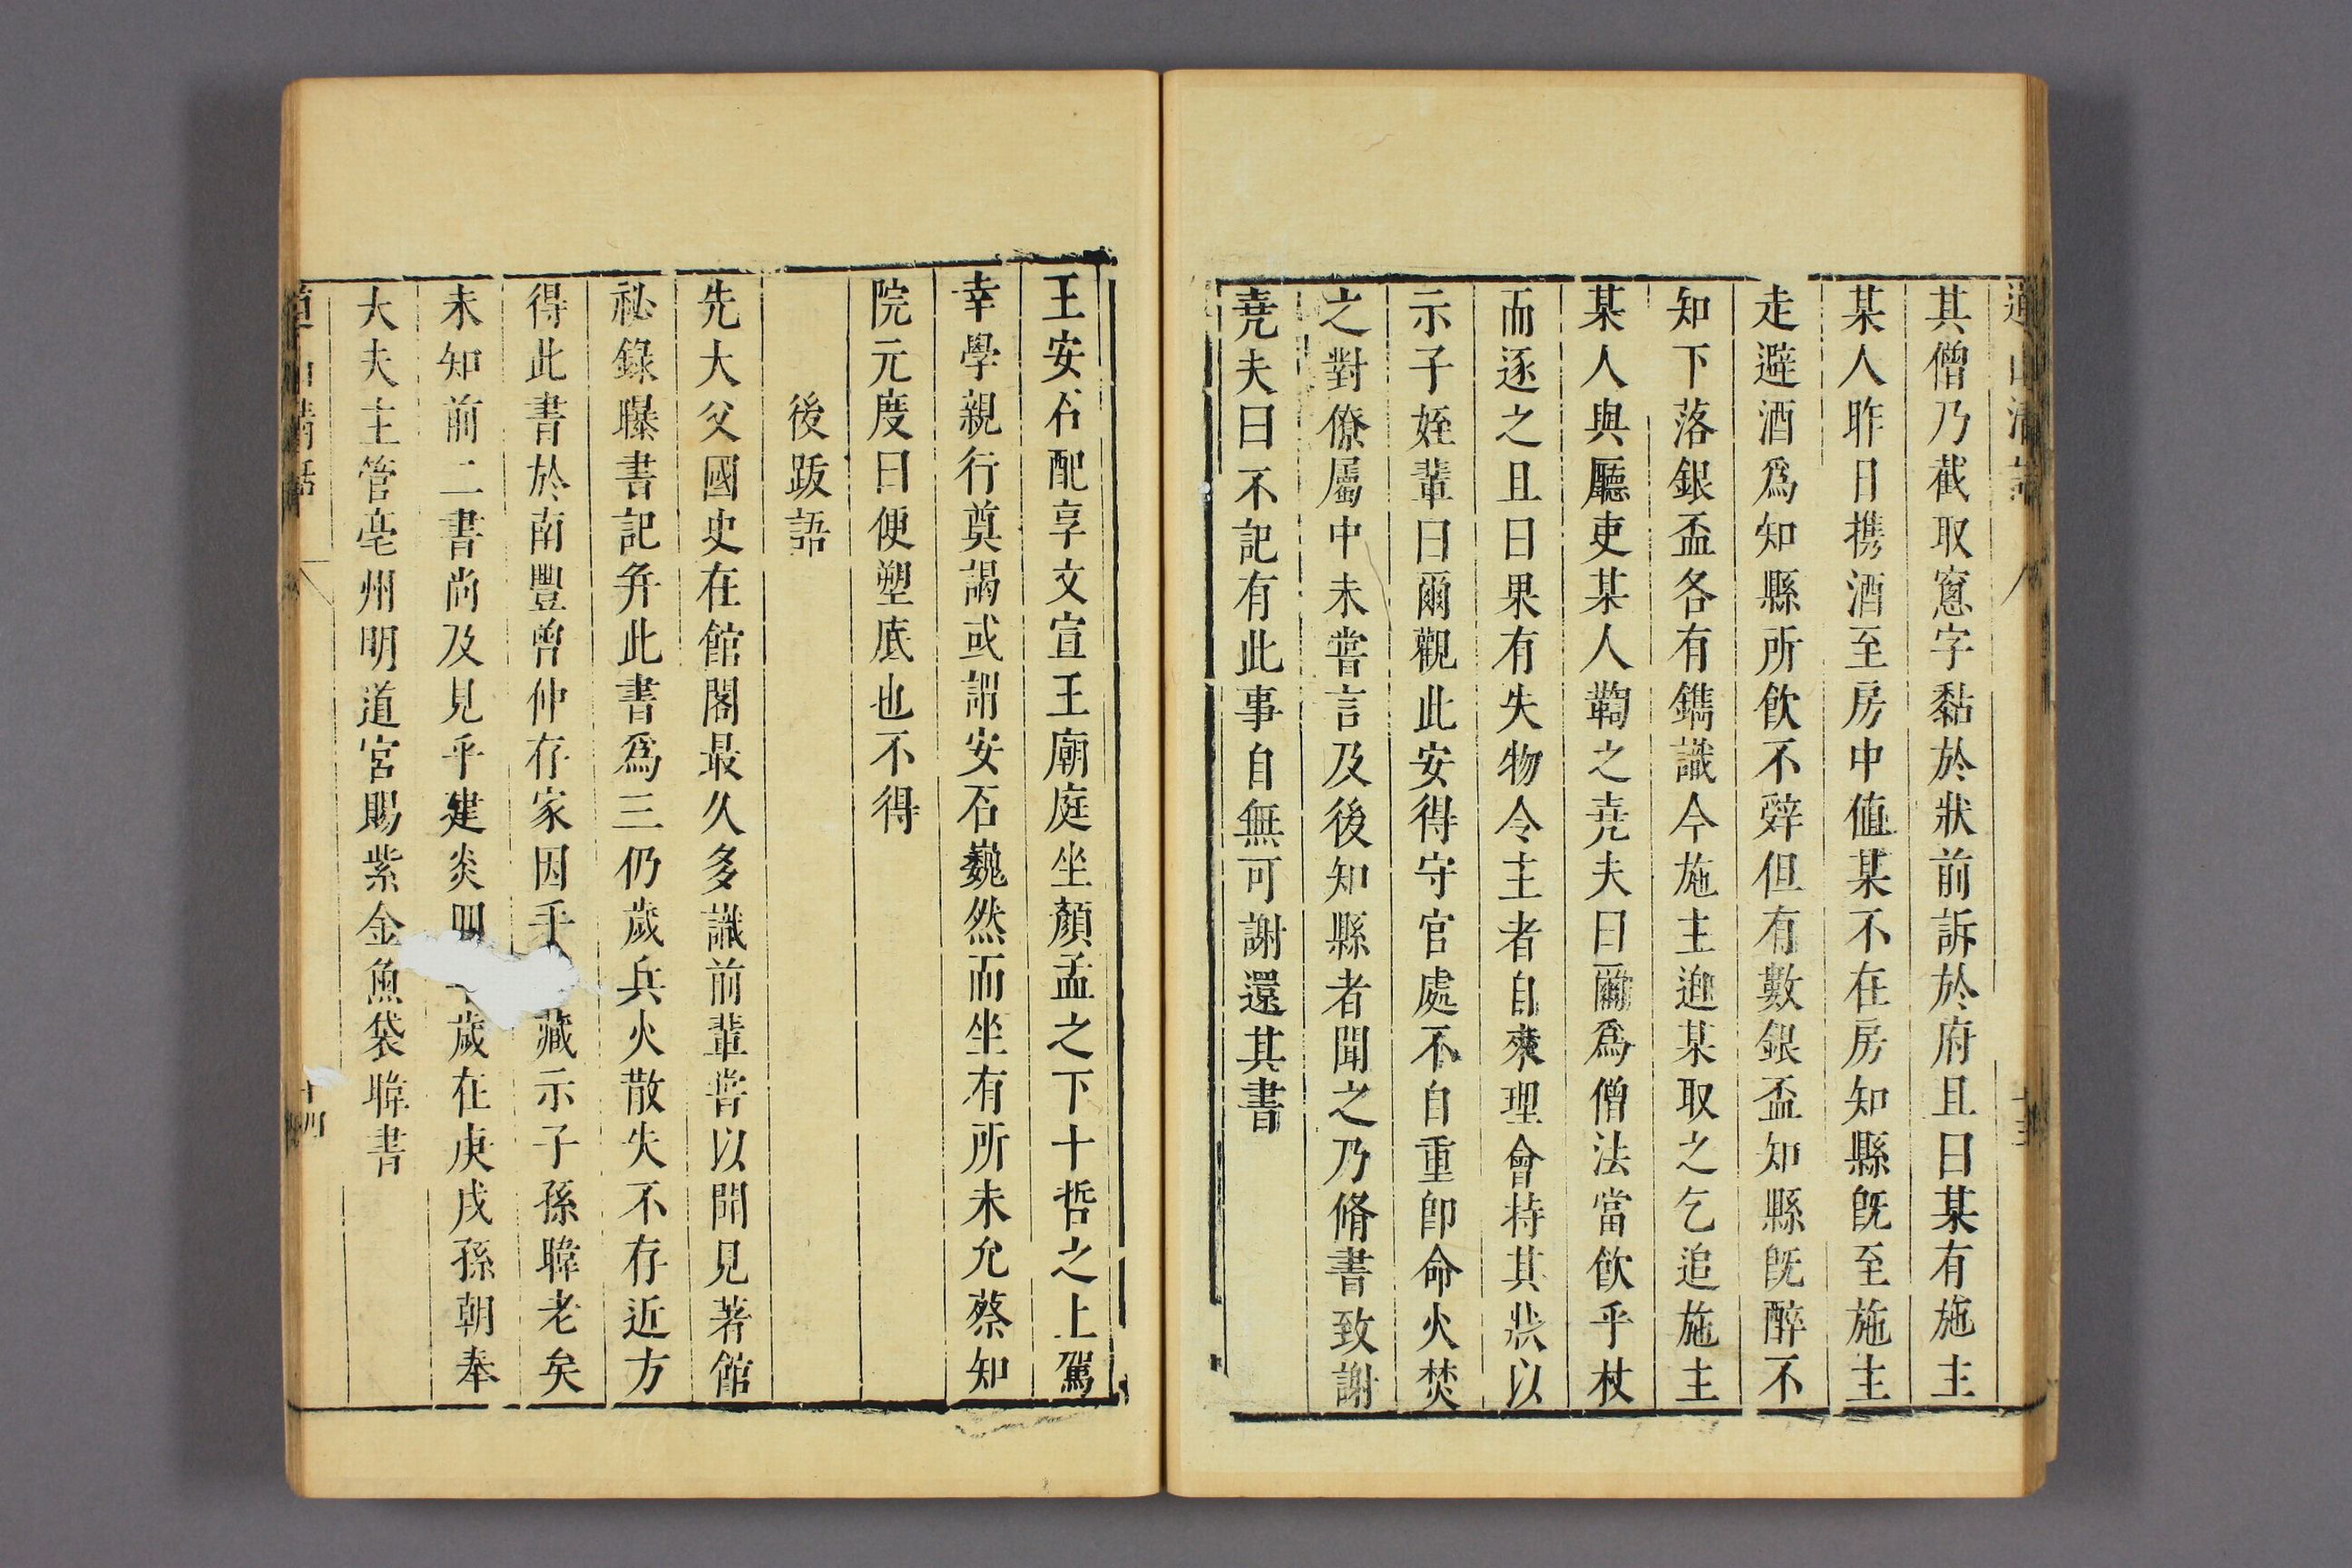 其僧乃截取窻字黏於狀前訴於府且曰某有施主
某人昨日携酒至房中值某不在房知縣旣至施主
走避酒爲知縣所飲不辤但有數銀盃知縣旣醉不
知下落銀盃各有鐫識今施主迯某取之乞追施主
某人與廳吏某人鞫之尭夫曰爾爲僧法當飲乎杖
而逐之且曰果有失物令主者自來理會持其狀以
示子姪輩曰爾觀此安得守官處不自重卽命火焚
之對僚屬中未嘗言及後知縣者聞之乃脩書致謝
尭夫曰不記有此事自無可謝還其書
王安石配享文宣王廟庭坐顏孟之下十哲之上駕
幸學親行奠謁或謂安石巍然而坐有所未允蔡知
院元度曰便塑底也不得
後跋語
先大父國史在館閣最久多識前輩嘗以聞見著館
祕錄曝書記幷此書爲三仍歲兵火散失不存近方
得此書於南豐曾仲存家因手藏示子孫暐老矣
未知前二書尚及見乎建炎四歲在庚戌孫朝奉
大夫主管亳州明道宮賜紫金魚袋暐書
清話